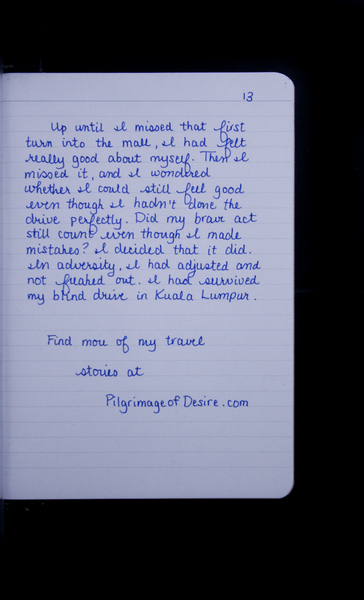 13
Up until I missed that first
turn into the mall, I had felt
really good about myself. Then I
missed it, and I wondered
whether I could still feel good
even though I hadn't done the
drive perfectly. Did my brave act
still count even though I made
mistakes? I decided that it did.
In adversity, I had adjusted and
not freaked out. I had survived
my blind drive in Kuala Lumpur.
Find more of my travel
stories at
PilgrimageofDesire.com